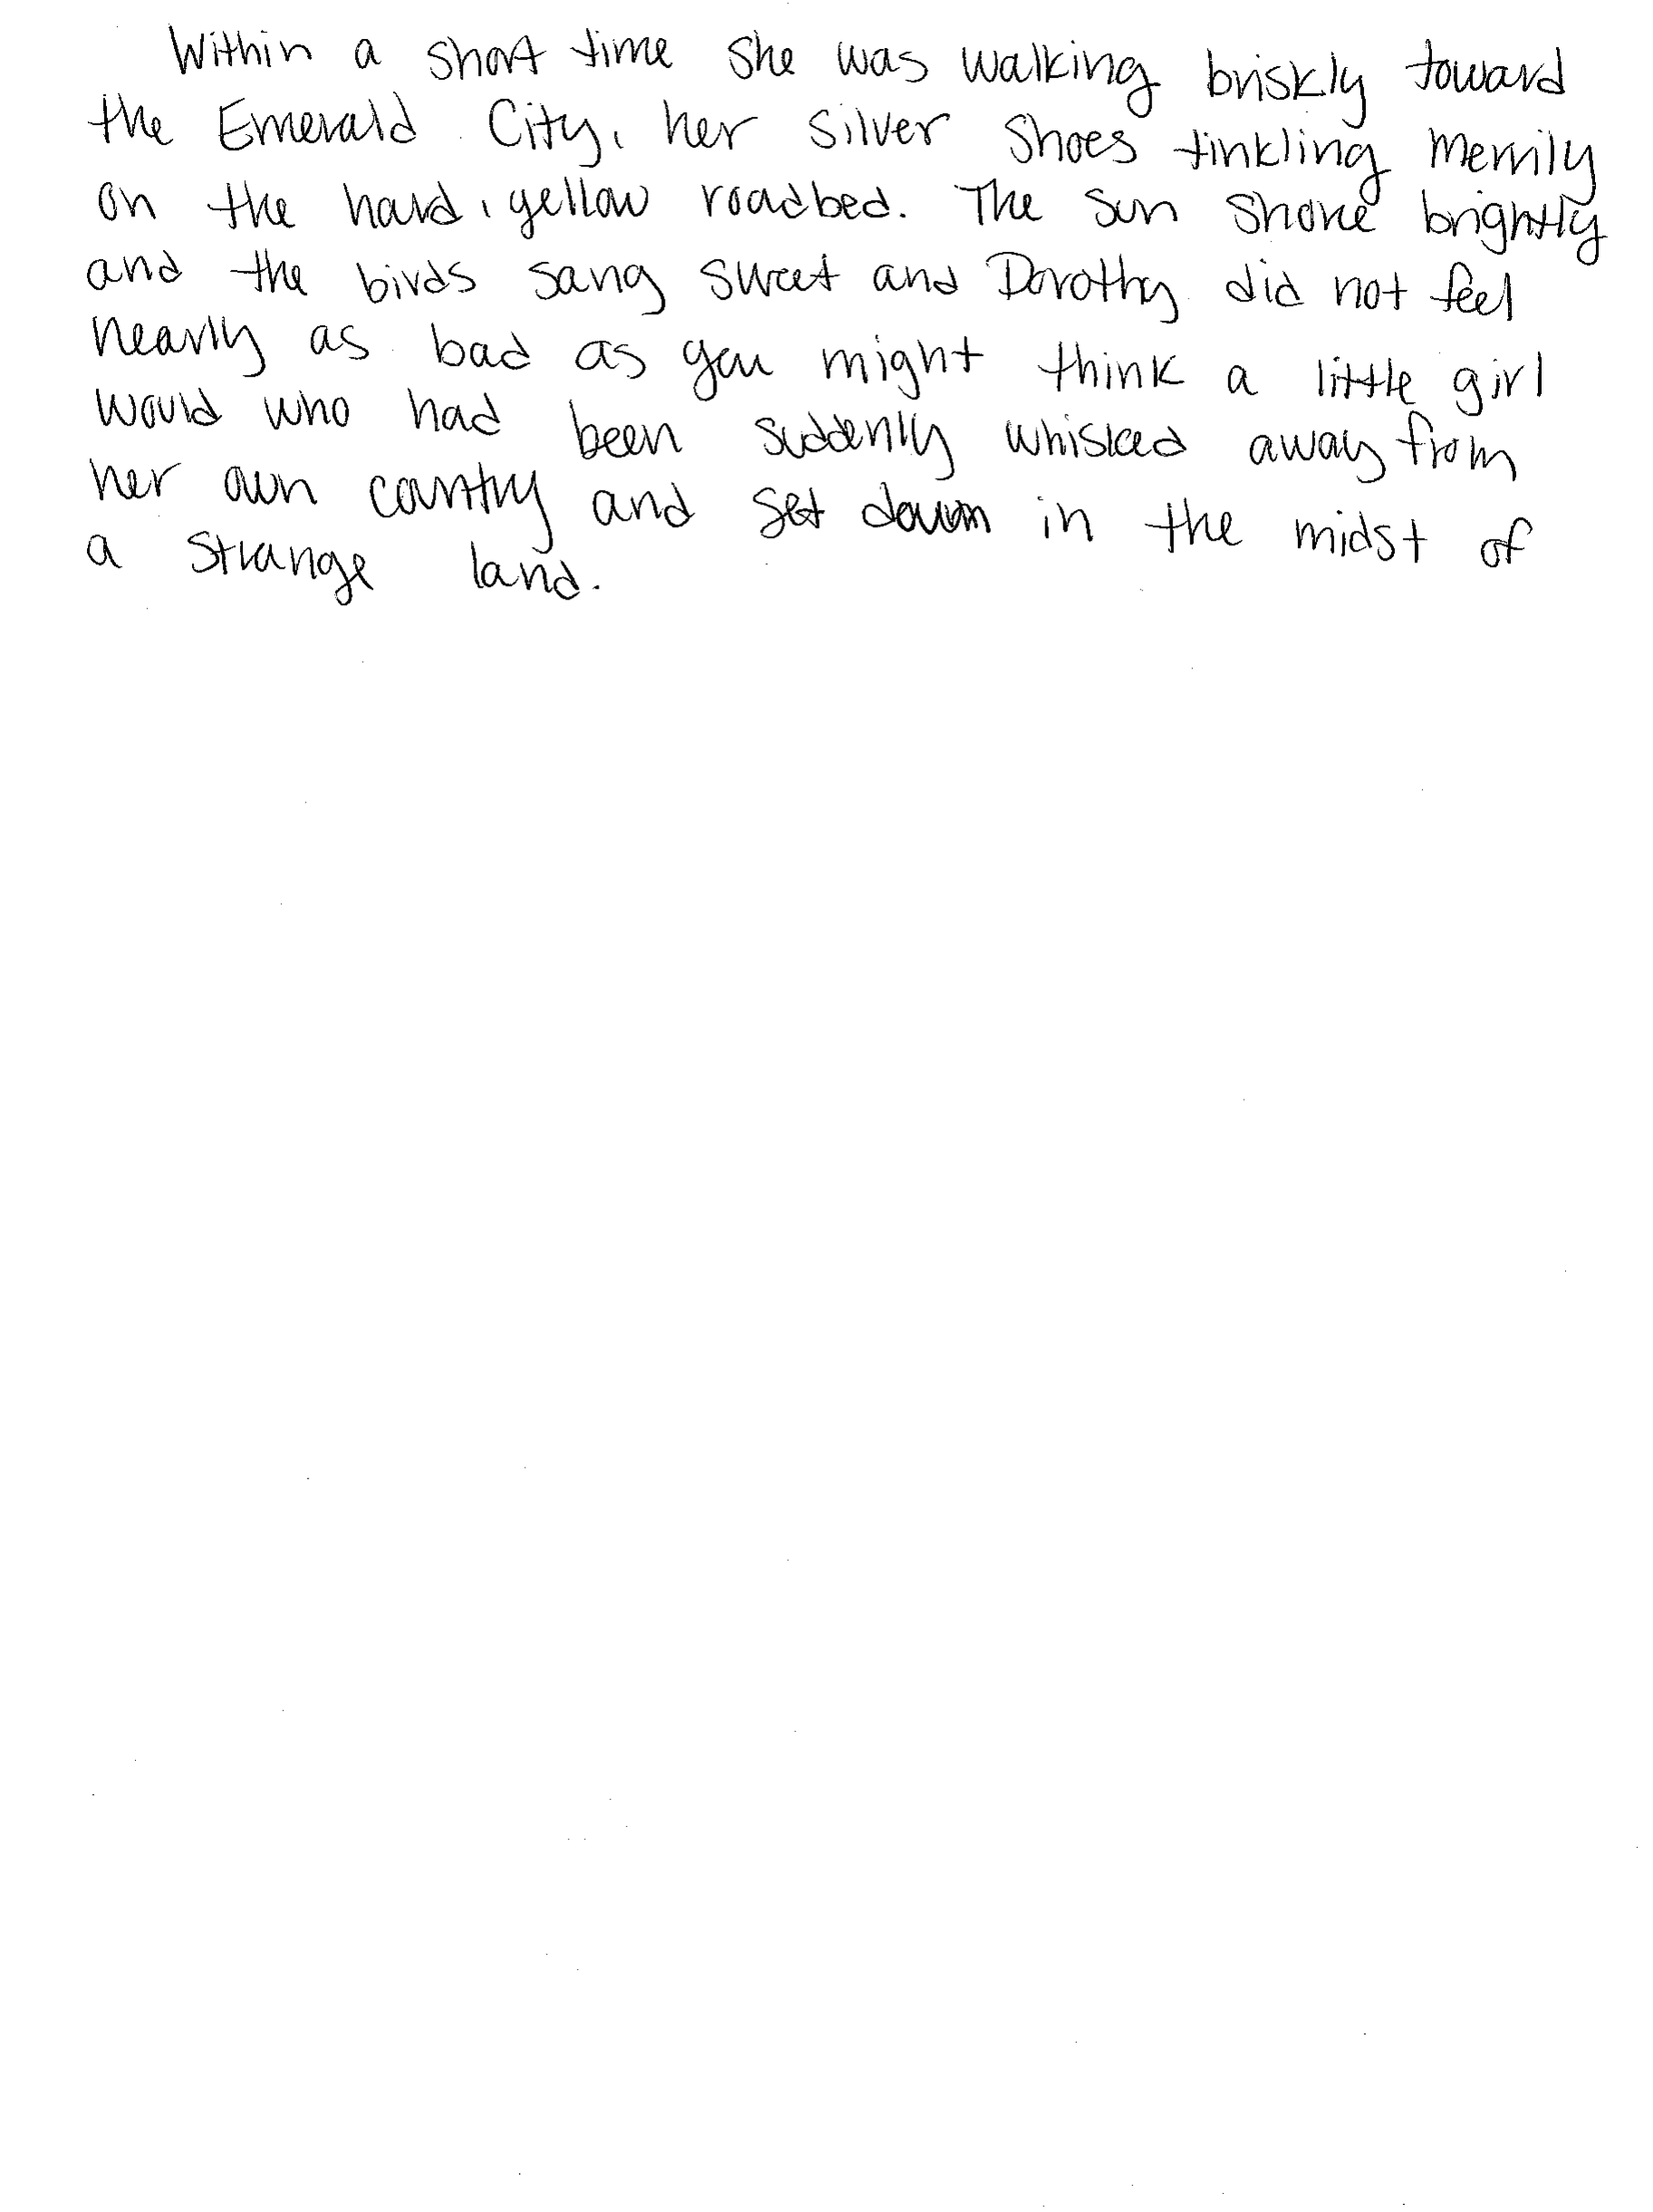 Within a short time she was walking briskly toward
the Emerald City, her silver shoes tinkling merrily
on the hard, yellow roadbed. The sun shone brightly
and the birds sang sweet and Dorothy did not feel
nearly as bad as you might think a little girl
would who had been suddenly whisked away from
her own country and set down in the midst of
a strange land.